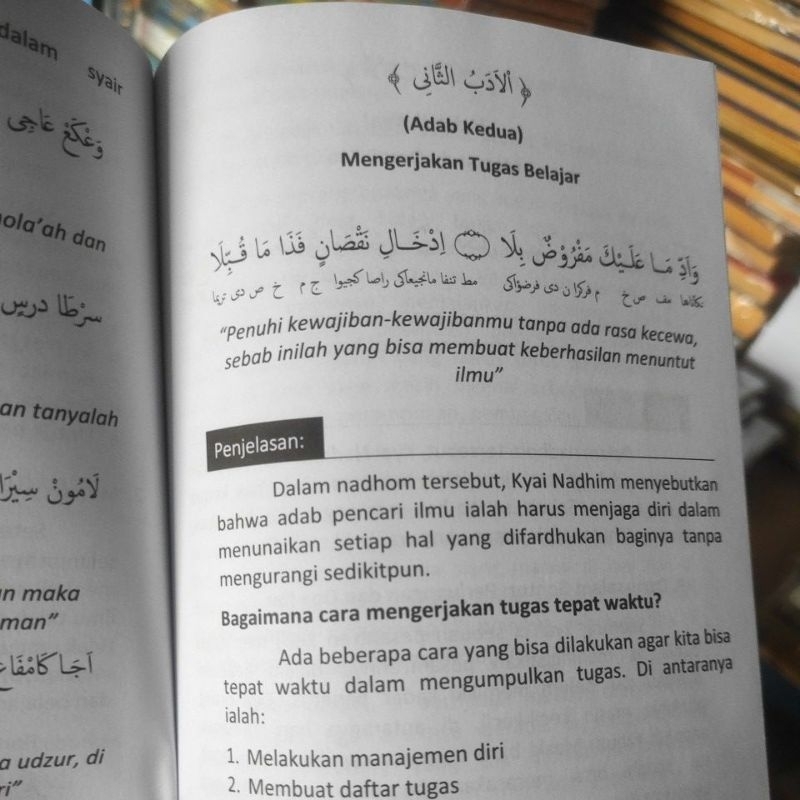 dalam
syair
وَعْكَعْ عَاجِى
ola'ah dan
سرْطَا درس
an tanyalah
لَامُونْ سِيْرَا
n maka
man"
اَجَا كَامْفَاعْ
a udzur, di
ri"
﴿ اَلْاَدَبُ الثَّانِى ﴾
(Adab Kedua)
Mengerjakan Tugas Belajar
وَاَدِّ مَا عَلَيْكَ مَفْرُوْضٌ بِلَا ۝ اِدْخَالِ نَقْصَانٍ فَذَا مَا قُبِّلَا
"Penuhi kewajiban-kewajibanmu tanpa ada rasa kecewa,
sebab inilah yang bisa membuat keberhasilan menuntut
ilmu"
Penjelasan:
Dalam nadhom tersebut, Kyai Nadhim menyebutkan
bahwa adab pencari ilmu ialah harus menjaga diri dalam
menunaikan setiap hal yang difardhukan baginya tanpa
mengurangi sedikitpun.
Bagaimana cara mengerjakan tugas tepat waktu?
Ada beberapa cara yang bisa dilakukan agar kita bisa
tepat waktu dalam mengumpulkan tugas. Di antaranya
ialah:
1. Melakukan manajemen diri
2. Membuat daftar tugas